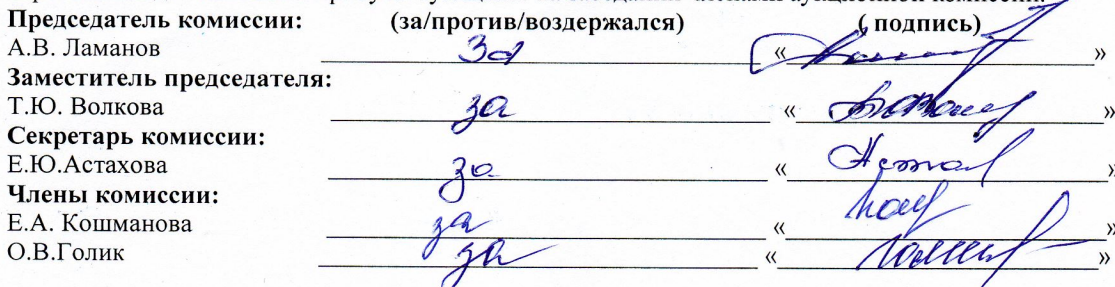 Председатель комиссии: (за/против/воздержался) ( подпись)
А.В. Ламанов За « »
Заместитель председателя:
Т.Ю. Волкова за « »
Секретарь комиссии:
Е.Ю.Астахова за « »
Члены комиссии:
Е.А. Кошманова за « »
О.В.Голик за « »